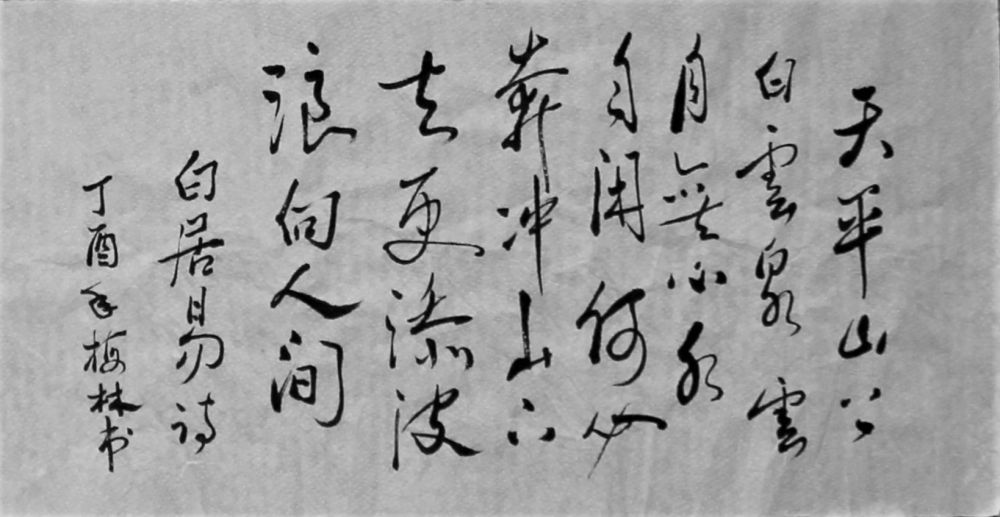 天平山上
白雲泉雲
自無心水
自閑何必
奔冲山下
去更添波
浪向人间
白居易诗
丁酉年梅林书